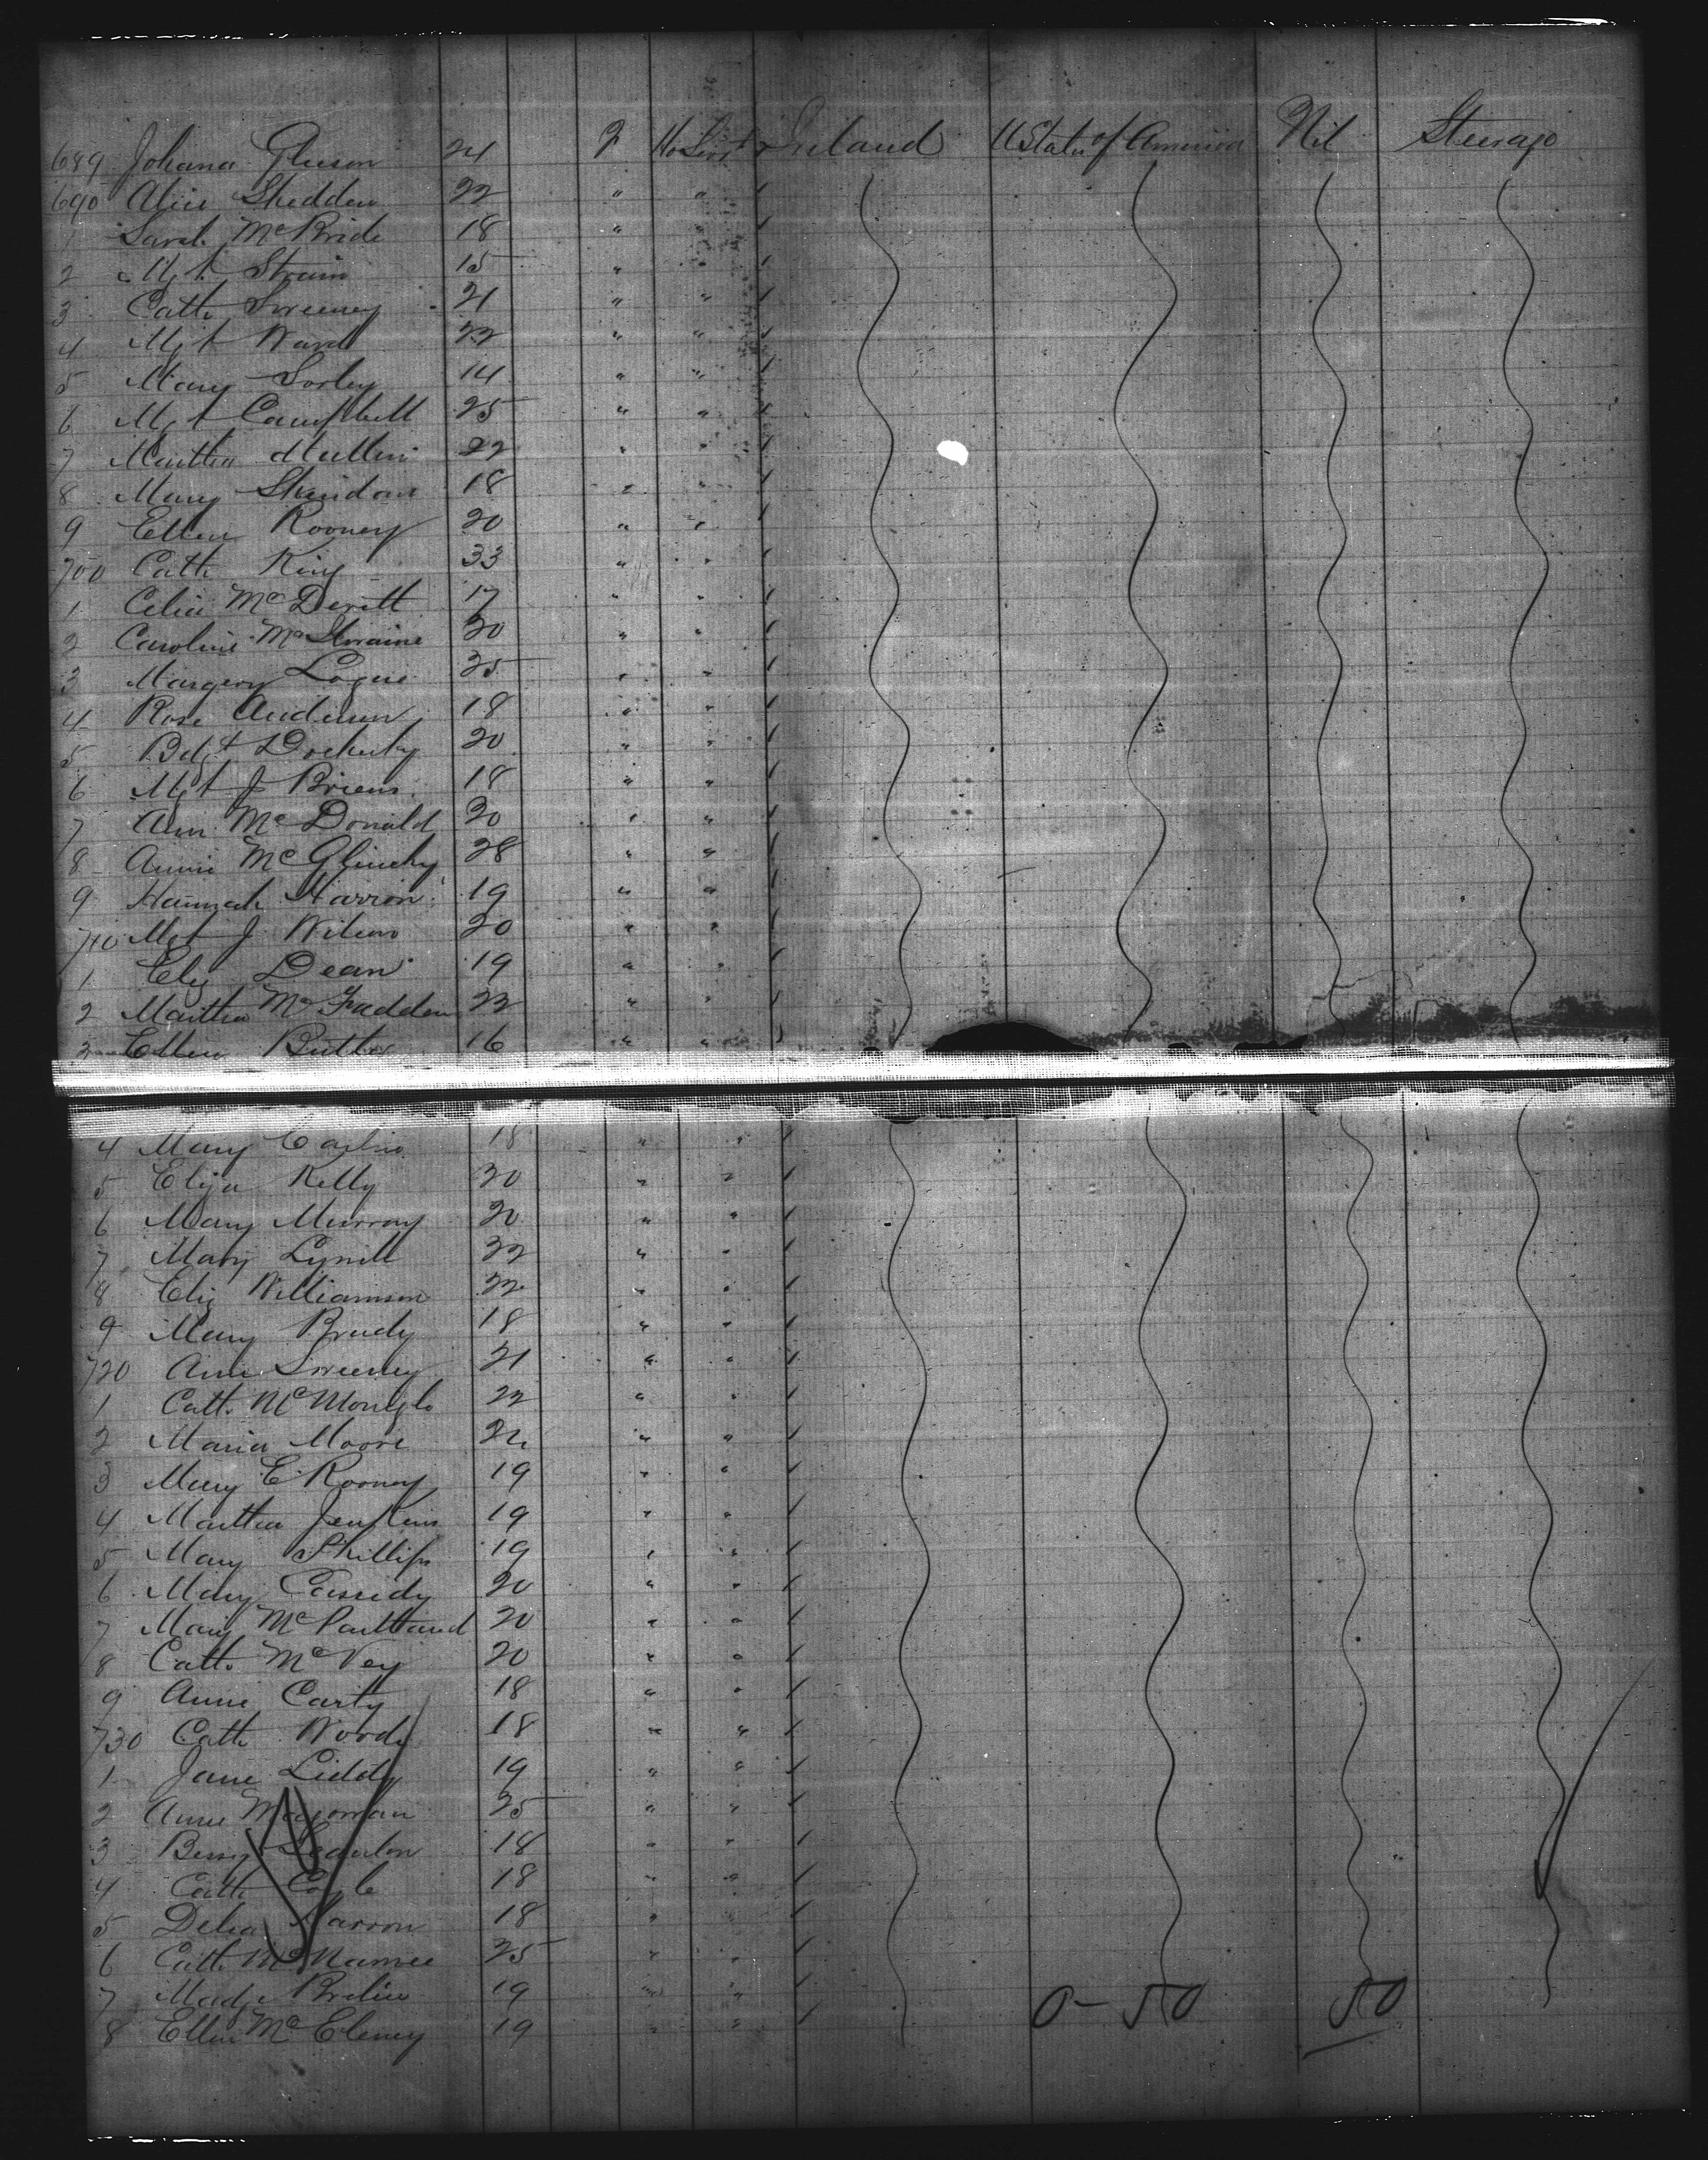 689 Johana Gleeson 24 F Ho Serv Ireland U States of America Nil Steerage
690 Alice Shedden 22 " "
1 Sarah McBride 18 " "
2 Mgt Strain 15 " "
3 Cath Sweeney 21 " "
4 Mgt Ward 22 " "
5 Mary Sorley 14 " "
6 Mgt Campbell 25 " "
7 Martha Mullin 22 " "
8 Mary Sheridan 18 " "
9 Ellen Rooney 20 " "
700 Cath King 33 " "
1 Celia McDevitt 17 " "
2 Caroline 20 " "
3 Margery Logue 25 " "
4 Rose Anderson 18 " "
5 Bdgt Docherty 20 " "
6 Mgt J Briens 18 " "
7 Ann McDonald 20 " "
8 Annie McGlinchy 28 " "
9 Hannah Harron 19 " "
710 Mgt J Wilson 20 " "
1 Eliz Dean 19 " "
2 Martha McFadden 22 " "
3 Ellen Butler 16 " "
4 Mary 18 " "
5 Eliza Kelly 20 " "
6 Mary Murray 20 " "
7 Mary 22 " "
8 Eliz Williamson 22 " "
9 Mary Brady 18 " "
720 Ann Sweeney 21 " "
1 Cath McMonigle 22 " "
2 Maria Moore " "
3 Mary E Rooney 19 " "
4 Martha Jenkins 19 " "
5 Mary Phillips 19 " "
6 Mary Cassidy 20 " "
7 Mary McPartland 20 " "
8 Cath McVey 20 " "
9 Annie Carty 18 " "
730 Cath Woods 18 " "
1 Jane Liddy 19 " "
2 Anne 25 " "
3 Bessy Scanlon 18 " "
4 Cath Coyle 18 " "
5 Delia Harron 18 " "
6 Cath McNamee 25 " "
7 Madge Breslin 19 " " 0 – 50 50
8 Ellen McEleney 19 " "